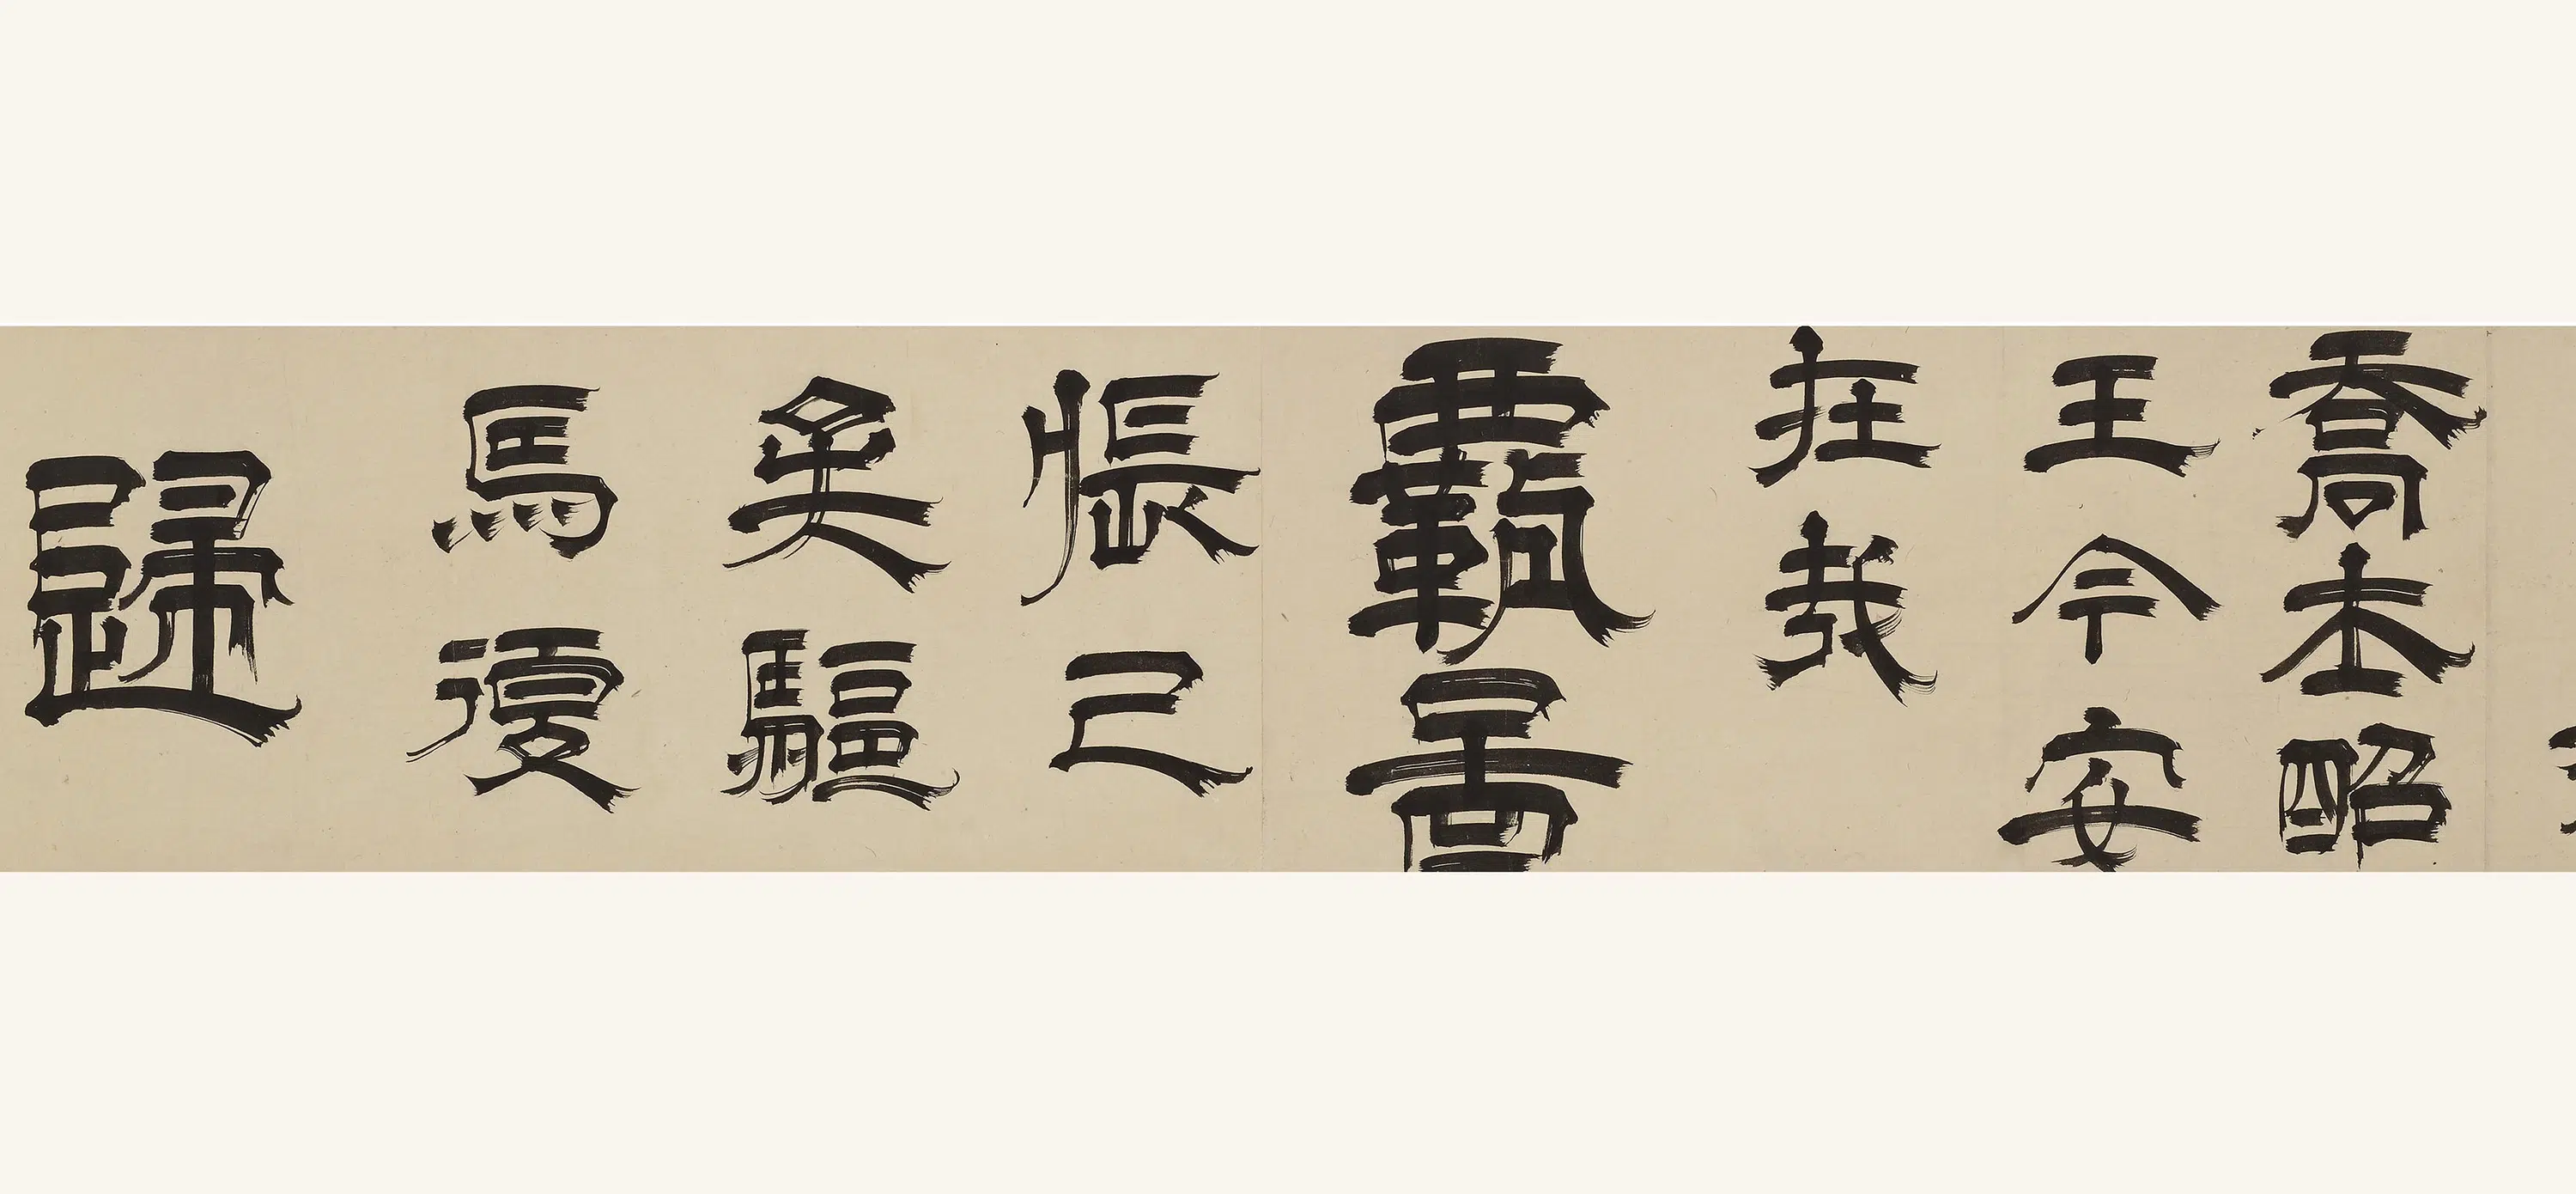 喬木昭
王今安
在哉
覇啚
悵已
矣驅
馬復
歸